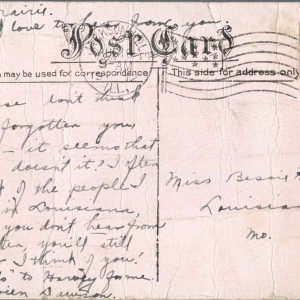 prairie.
love to hear from you
Post Card
may be used for correspondence
This side for address only
don't think
forgotten you,
— it seems that
doesn't it? I often
of the people
in Louisiana,
you don't hear from
you'll still
I think of you!
to" to Harvey Jame.
Dawson.
Miss Bessie
Louisia
Mo.